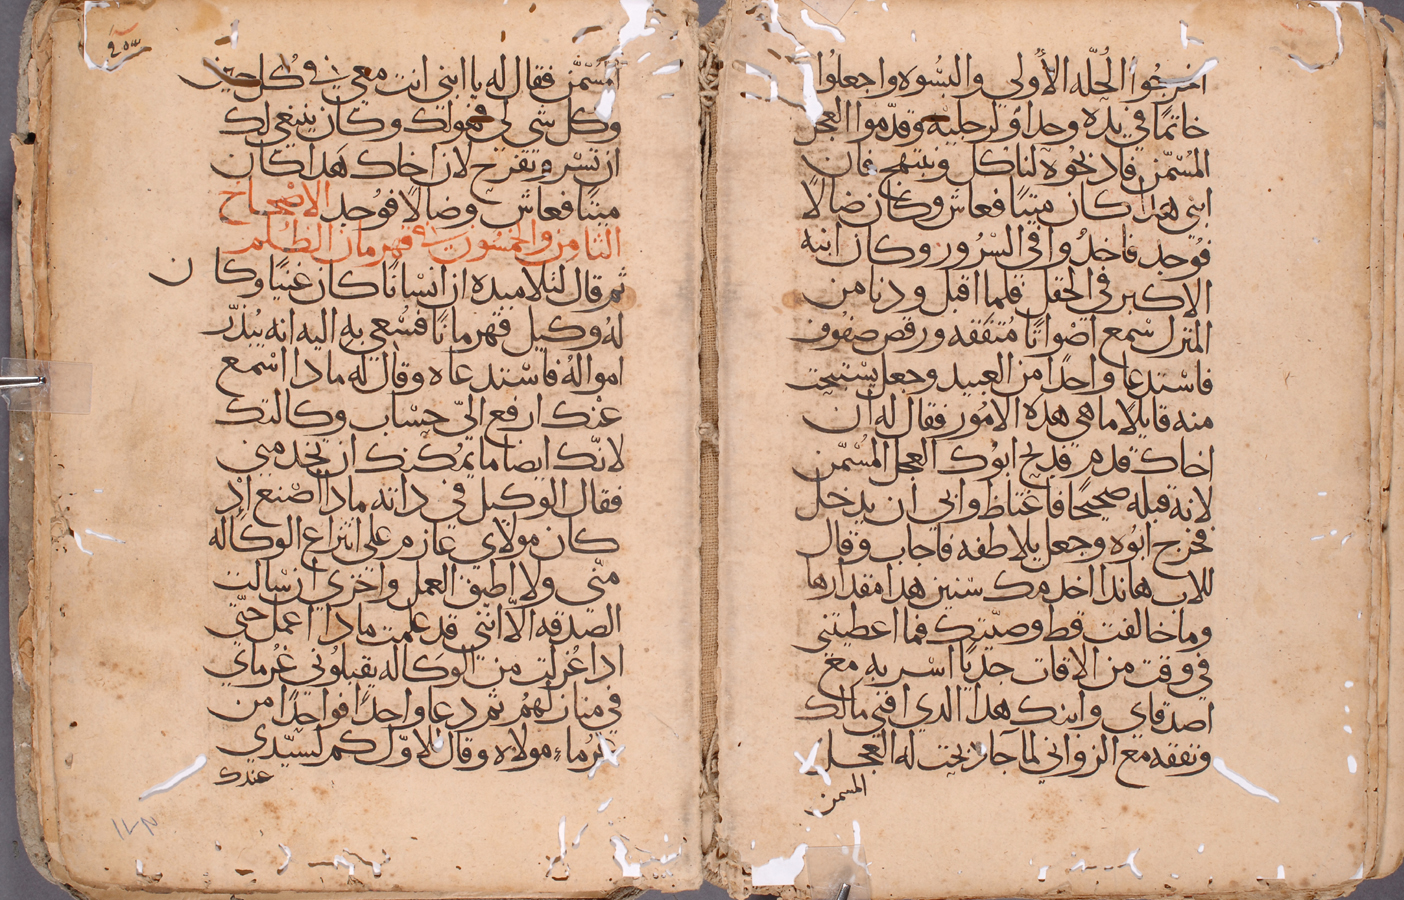 اخرجوا الحُلّه الأولي والبسُوه واجعلوُا
خاتمًا في يده وحداوً لرجليه وقدّموا العجل
المُسْمّن فادبحُوه لناكل ونبتهج فان
ابني هدا كان ميتًا فعاش وكان ضالاً
فوُجد فاخدُوا في السّرُور وكان ابنه
الاكبر في الحقل فلما اقبل ودنا من
المنزل سْمع اصْواتًا مُتفقه ورقص صفوف
فاسْتدعا واحدًا من العبيد وجعل يسْتبحت
منه قايلًا ما هي هده الامُور فقال له ان
اخاك قدم فدبح ابوُك العجل المُسْمّن
لانه قبله صحيحًا فاغتاظ وابي ان يدخل
فخرج ابوُه وجعل يلاطفه فاجاب وقال
للاب هاندا اخدمك سْنين هدا مقدارها
وما خالفت قط وصيّتك فما اعطيتني
في وقت من الاوقات جديًا اسْر به مع
اصدقاي وابنك هدا الدي افني مالك
ونفقه مع الزواني لما جا دبحت له العجل
المسمن
٢٥٣
المُسْمّن فقال له يا ابني انت معي في كُل حين
وكل شي لي فهو لك وكان ينبغي لك
ان تسْر وتفرح لان اخاك هَدا كان
ميتًا فعاش وضالاً فوُجد الاصْحاح
الثامن والخمسُون قهرمان الظُلم
ثم قال لتلاميده ان انسْانًا كان غنيًا وكان
لهُ وكيل قهرمانًا فسُعي به اليه انه يُبدّر
اموالهُ فاسْتدعاه وقال له مادا اسْمع
عنْك ارفع اليّ حسْاب وكالتك
لانّك ايضًا ما يمُكنك ان تخدمني
فقال الوكيل في داته مادا اصْنع اد
كان مولاي عازم علي انتزاع الوكاله
منّي ولا اطيق العمل واخزي ان سْالت
الصدقه الاّ انّني قد علمت مادا اعمل حتّي
ادا عُزلت من الوكاله يقبلوُني غرُماي
في منازلهُم ثم دعا واحدًا فواحدًا من
غرُماء مولاه وقال للاوّل كم لسيّدي
عندك
١١٢٣